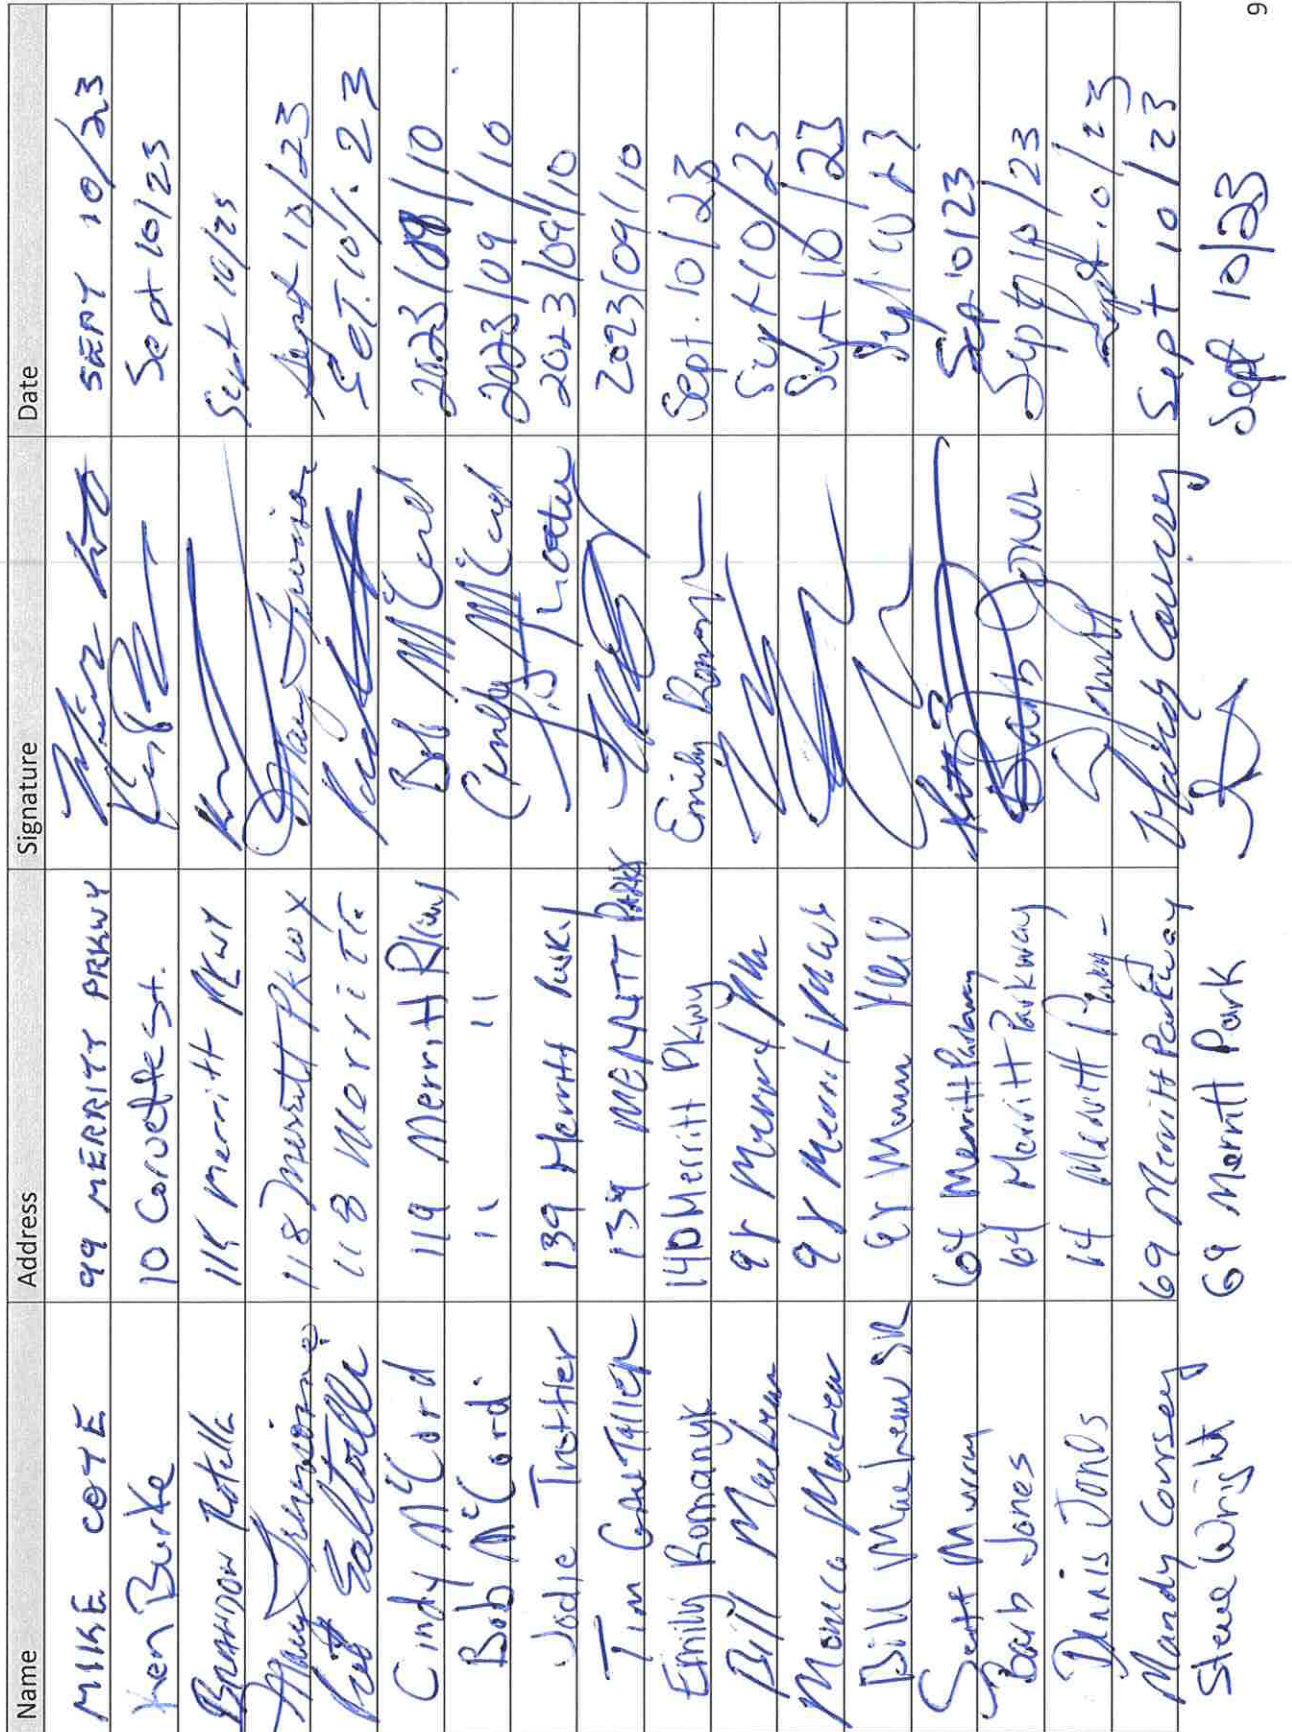 Name Address Signature Date
MIKE COTE 99 MERRITT PRKWY SEPT 10/23
Ken Burke 10 Corvette St. Sept 10/23
BRANDON Rotella 115 Merritt PKWY Sept 10/23
Mary 118 Merritt Pkwy Mary Sept 10/23
118 Merritt 10/23
Cindy McCord 119 Merritt Pkwy Bob McCord 2023/09/10
Bob McCord " " Cindy McCord 2023/09/10
Jodie Trotter 139 Merritt J. Trotter 2023/09/10
Tim 139 MERRITT PARK 2023/09/10
Emily Romanyk 140 Merritt Pkwy Emily Roman Sept. 10/23
Bill 98 Sept 10/23
98 Merritt Sept 10/23
Bill SR 98
Scott Murray 64 Merritt Parkway Sep 10/23
Barb Jones 64 Merritt Parkway Barb Jones Sept 10/23
Dennis Jones 64 Merritt Sept. 10/23
Mandy Coursey 69 Merritt Parkway Mandy Coursey Sept 10/23
Steve Wright 69 Merritt Park Sept 10/23
9